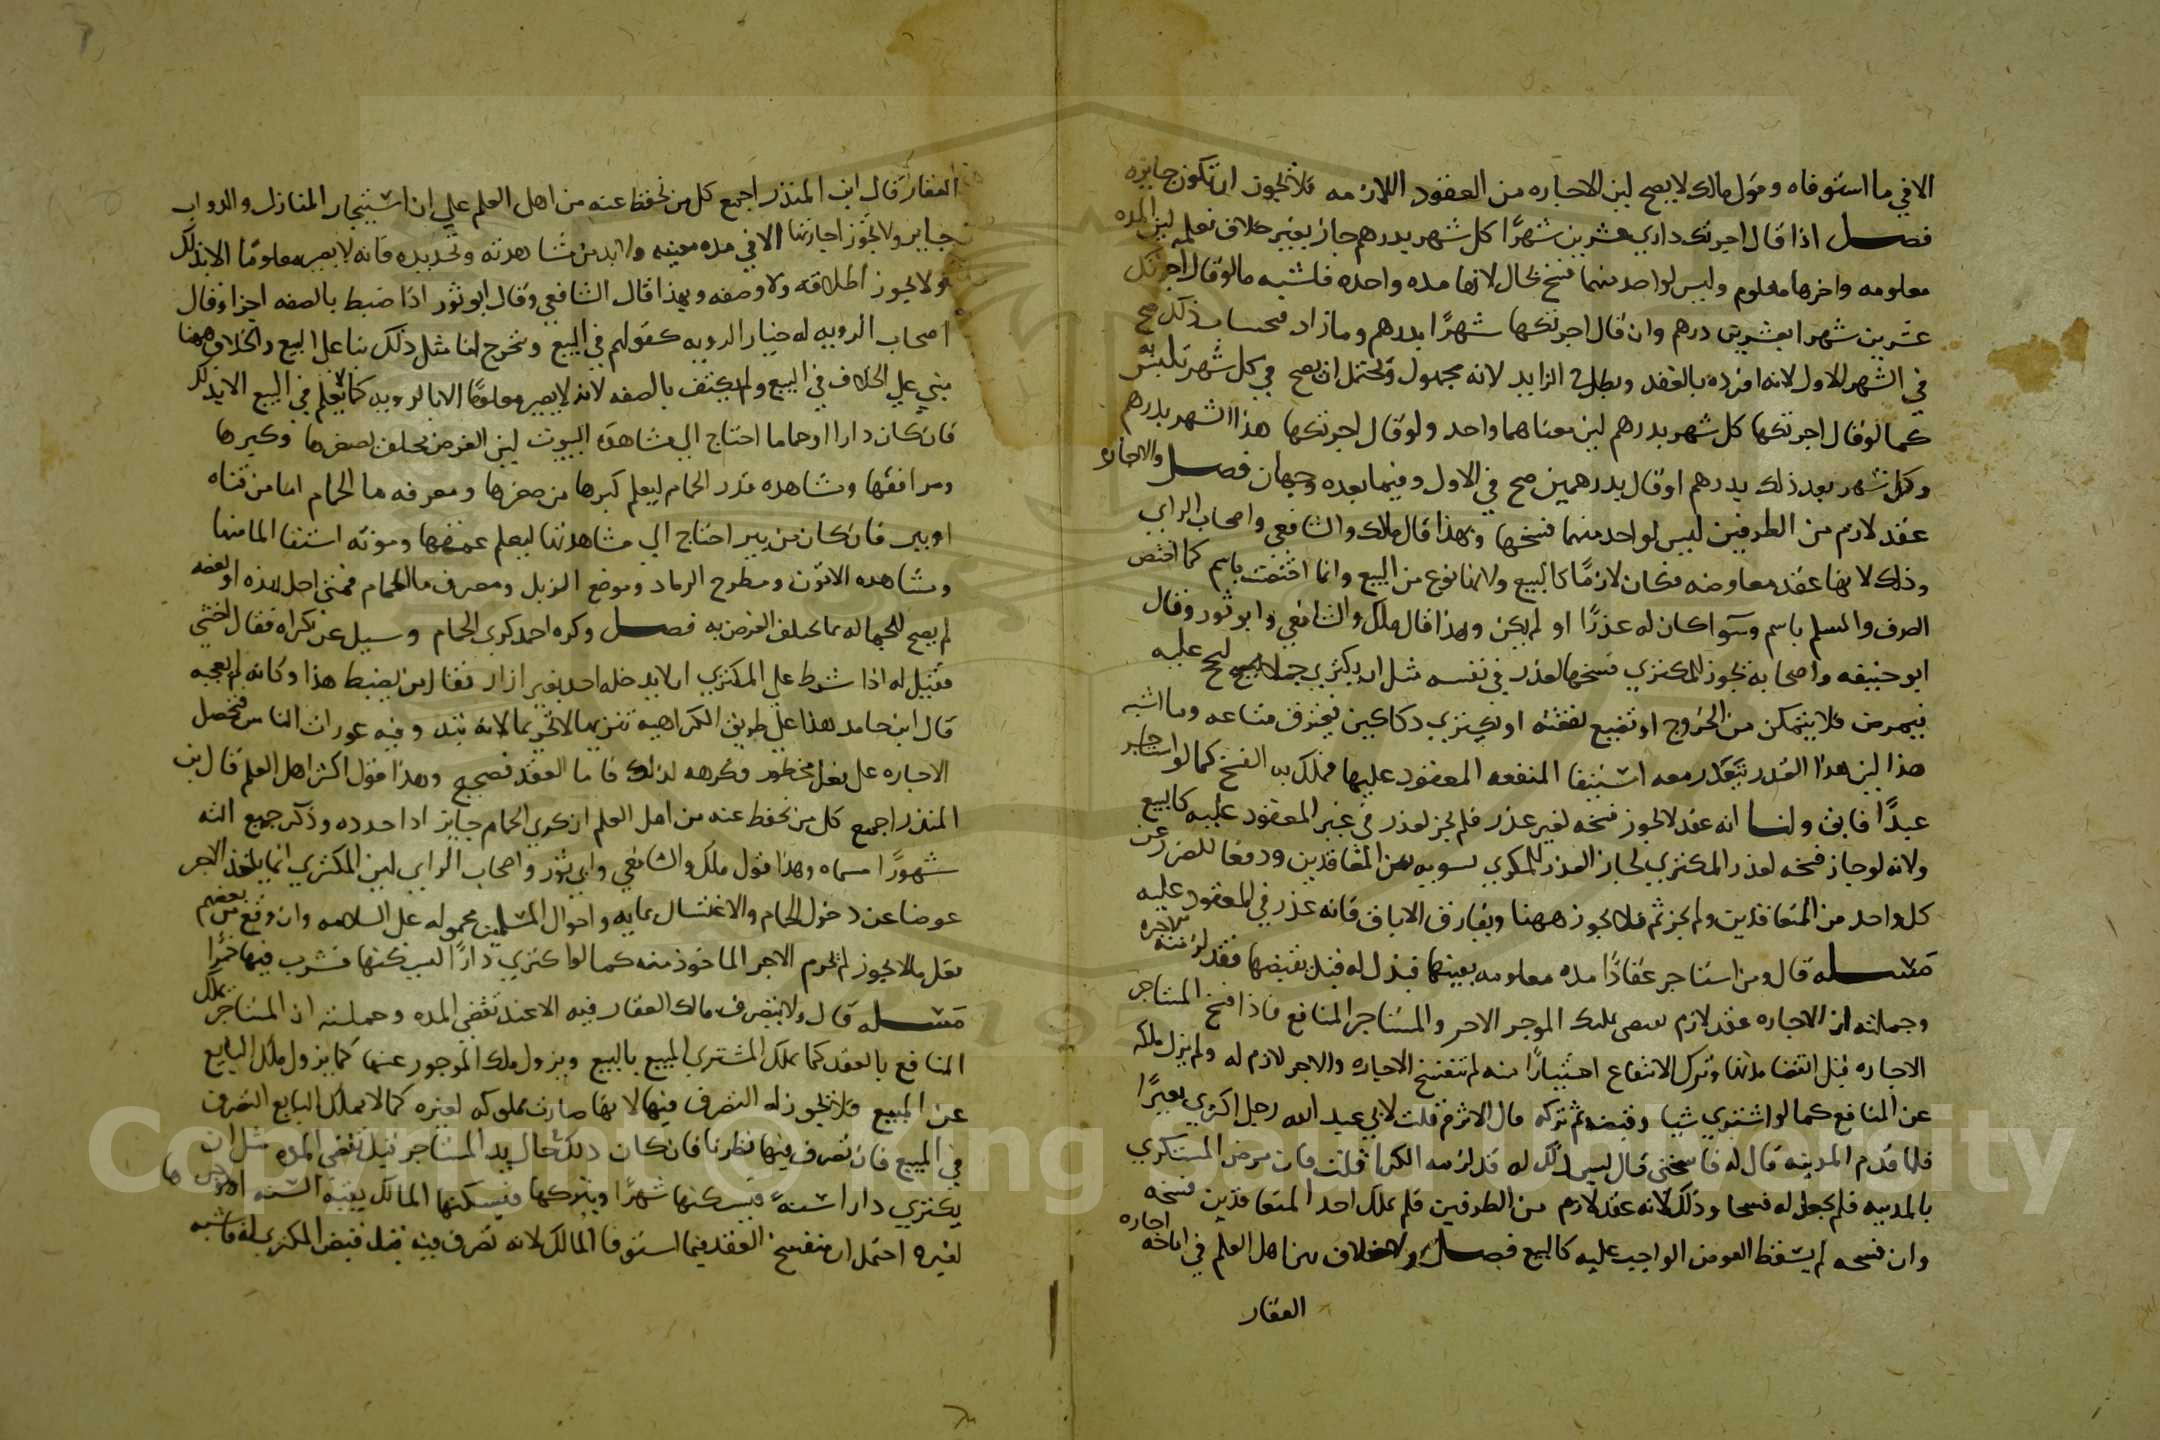 الا في ما استوفاه وقول مالك لا يصح لين الاجاره من العقود اللازمه فلا تجوز ان تكون جايزه
فصل اذا قال اجرتك داري عشرين شهرًا كل شهر بدرهم جاز بغير خلاف نعلمه لين المده
معلومه واخرها معلوم وليس لواحد منهما فسخ بحال لانها مده واحده فاشبه ما لو قال اجرتك
عشرين شهرا بعشرين درهم وان قال اجرتكها شهرًا بدرهم وما زاد فبحساب ذلك صح
في الشهر الاول لانه افرده بالعقد وبطل في الزايد لانه مجهول ويحتمل ان يصح في كل شهر تلبس به
كما لو قال اجرتكها كل شهر بدرهم لين معناهما واحد ولو قال اجرتكها هذا الشهر بدرهم
وكل شهر بعد ذلك بدرهم او قال بدرهمين صح في الاول وفيما بعده وجهان فصل والاجاره
عقد لازم من الطرفين ليس لواحد منهما فسخها وبهذا قال مالك والشافعي واصحاب الراي
وذلك لانها عقد معاوضه فكان لازمًا كالبيع ولانها نوع من البيع وانما اختصت باسم كما اختص
الصرف والسلم باسم وسوا كان له عذرًا او لم يكن وبهذا قال ملك والشافعي وابو ثور وقال
ابو حنيفه واصحابه يجوز للمكتري فسخها لعذر في نفسه مثل ان يكتري جملا ليحج عليه
فيمرض فلا يتمكن من الخروج او تضيع نفقته او يكتري دكاكين فيحترق متاعه وما اشبه
هذا لين هذا العذر يتعذر معه استيفا المنفعه المعقود عليها فملك به الفسخ كما لو استاجر
عبدًا فابق ولنا انه عقد لا يجوز فسخه لغير عذر فلم يجز لعذر في غير المعقود عليه كالبيع
ولانه لو جاز فسخه لعذر المكتري لجاز لعذر المكري تسويه بين المتعاقدين ودفعا للضرر عن
كل واحد من المتعاقدين ولم يجز ثم فلا يجوز ههنا ويفارق الاباق فانه عذر في المعقود عليه
مسله قال ومن استاجر عقارًا مده معلومه بعينها فبدا له قبل تقضيها فقد لزمته الاجره
وجملته ان الاجاره عقد لازم يقتضي تمليك الموجر الاجر والمستاجر المنافع فاذا فسخ المستاجر
الاجاره قبل انقضا مدتها وترك الانتفاع اختيارًا منه لم تنفسخ الاجاره والاجر لازم له ولم يزل ملكه
عن المنافع كما لو اشترى شيا وقبضه ثم تركه قال الاثرم قلت لابي عبد الله رجل اكترى بعيرًا
فلما قدم المدينه قال له فاسخني قال ليس ذلك له قد لزمه الكرا قلت فان مرض المستكري
بالمدينه فلم يجعل له فسخا وذلك لانه عقد لازم من الطرفين فلم يملك احد المتعاقدين فسخه
وان فسخه لم يسقط العوض الواجب عليه كالبيع فصل ولا خلاف بين اهل العلم في اباحه اجاره
العقار
العقار قال ابن المنذر اجمع كل من نحفظ عنه من اهل العلم علي ان استيجار المنازل والدواب
جايز ولا تجوز اجارتها الا في مده معينه ولا بد من مشاهدته وتحديده فانه لا يصير معلومًا الا بذلك
ولا يجوز اطلاقه ولا وصفه وبهذا قال الشافعي وقال ابو ثور اذا ضبط بالصفه اجزا وقال
اصحاب الراي له خيار الرويه كقولهم في البيع ويخرج لنا مثل ذلك بنا علي البيع والخلاف ههنا
مبني علي الخلاف في البيع ولم يكتف بالصفه لانه لا يصير معلومًا الا بالرويه كما لا يعلم في البيع الا بذلك
فان كان دارا او حماما احتاج الي مشاهده البيوت لين الغرض يختلف بصغرها وكبرها
ومرافقها ومشاهده قدر الحمام ليعلم كبرها من صغرها ومعرفه ما الحمام اما من قناه
او بير فان كان من بير احتاج الي مشاهدتها ليعلم عمقها ومونه استقا الما منها
ومشاهده الاتون ومطرح الرماد وموضع الزبل ومصرف ما الحمام فمتى اخل بهذه او بعضه
لم يصح للجهاله بما يختلف الغرض به فصل وكره احمد كري الحمام وسيل عن كراه فقال اخشي
فقيل له اذا شرط علي المكتري الا يدخله احد بغير ازار فقال من يضبط هذا وكانه لم يعجبه
قال ابن حامد هذا علي طريق الكراهيه تنزيها لا تحريما لانه تبد وفيه عورات الناس فتحصل
الاجاره علي فعل محظور فكرهه لذلك فاما العقد فصحيح وهذا قول اكثر اهل العلم قال ابن
المنذر اجمع كل من نحفظ عنه من اهل العلم ان كري الحمام جايز اذا حدده وذكر جميع الته
شهورًا مسماه وهذا قول ملك والشافعي وابي ثور واصحاب الراي لين المكتري انما ياخذ الاجر
عوضا عن دخول الحمام والاغتسال بمايه واحوال المسلمين محموله علي السلامه وان وقع من بعضهم
فعل ما لا يجوز لم يحرم الاجر الماخوذ منه كما لو اكتري دارًا ليسكنها فشرب فيها خمرًا
مسله قال ولا يتصرف مالك العقار فيه الا عند تقضي المده وجملته ان المستاجر يملك
المنافع بالعقد كما يملك المشتري المبيع بالبيع ويزول ملك الموجر عنها كما يزول ملك البايع
عن المبيع فلا يجوز له التصرف فيها لانها صارت مملوكه لغيره كما لا يملك البايع التصرف
في المبيع فان تصرف فيها نظرنا فان كان ذلك حال يد المستاجر قبل تقضي المده مثل ان
يكتري دارا سنه فيسكنها شهرًا ويتركها فيسكنها المالك بقيه السنه او يوجرها
لغيره احتمل ان ينفسخ العقد فيما استوفا المالك لانه تصرف فيه قبل قبض المكتري له فاشبه
Copyright © King Saud University